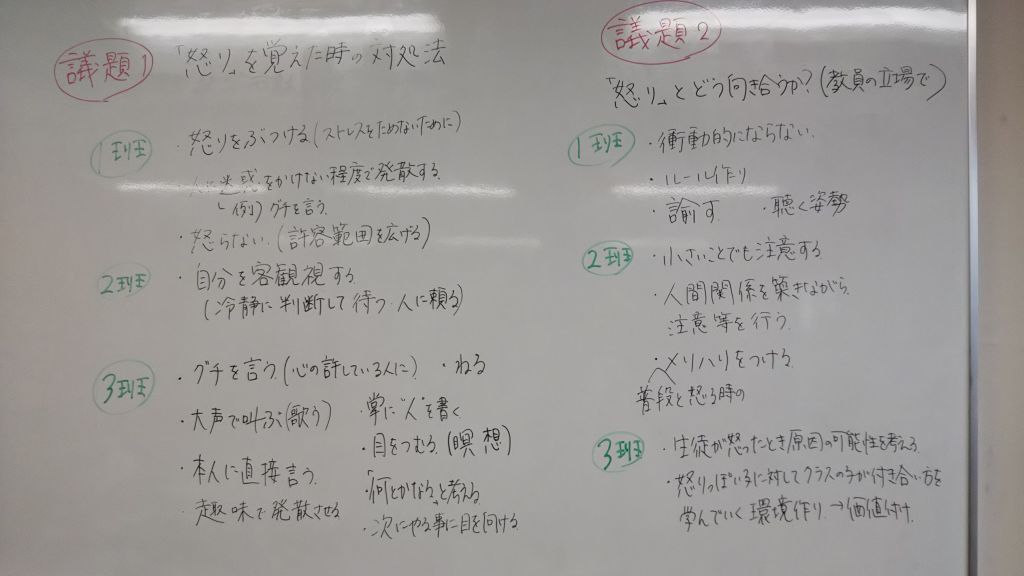 議題1 「怒り」を覚えた時の対処法
1班 ・怒りをぶつける(ストレスをためないために)
迷惑をかけない程度で発散する
例) グチを言う
・怒らない.(許容範囲を広げる)
2班 ・自分を客観視する
(冷静に判断して待つ 人に頼る)
3班 ・グチを言う.(心の許している人に) ・ねる
・大声で叫ぶ(歌う)
・本人に直接言う
・趣味で発散させる
・掌に"人"を書く
・目をつむる(瞑想)
・「何とかなる」と考える
・次にやる事に目を向ける
議題2
「怒り」とどう向き合うか?(教員の立場で)
1班 ・衝動的にならない.
・ルール作り
・諭す ・聴く姿勢
2班 ・小さいことでも注意する
・人間関係を築きながら
注意等を行う.
・メリハリをつける
普段と怒る時の
3班 ・生徒が怒ったとき原因の可能性を考える
・怒りっぽい子に対してクラスの子が付き合い方を
学んでいく環境作り.→価値付け.